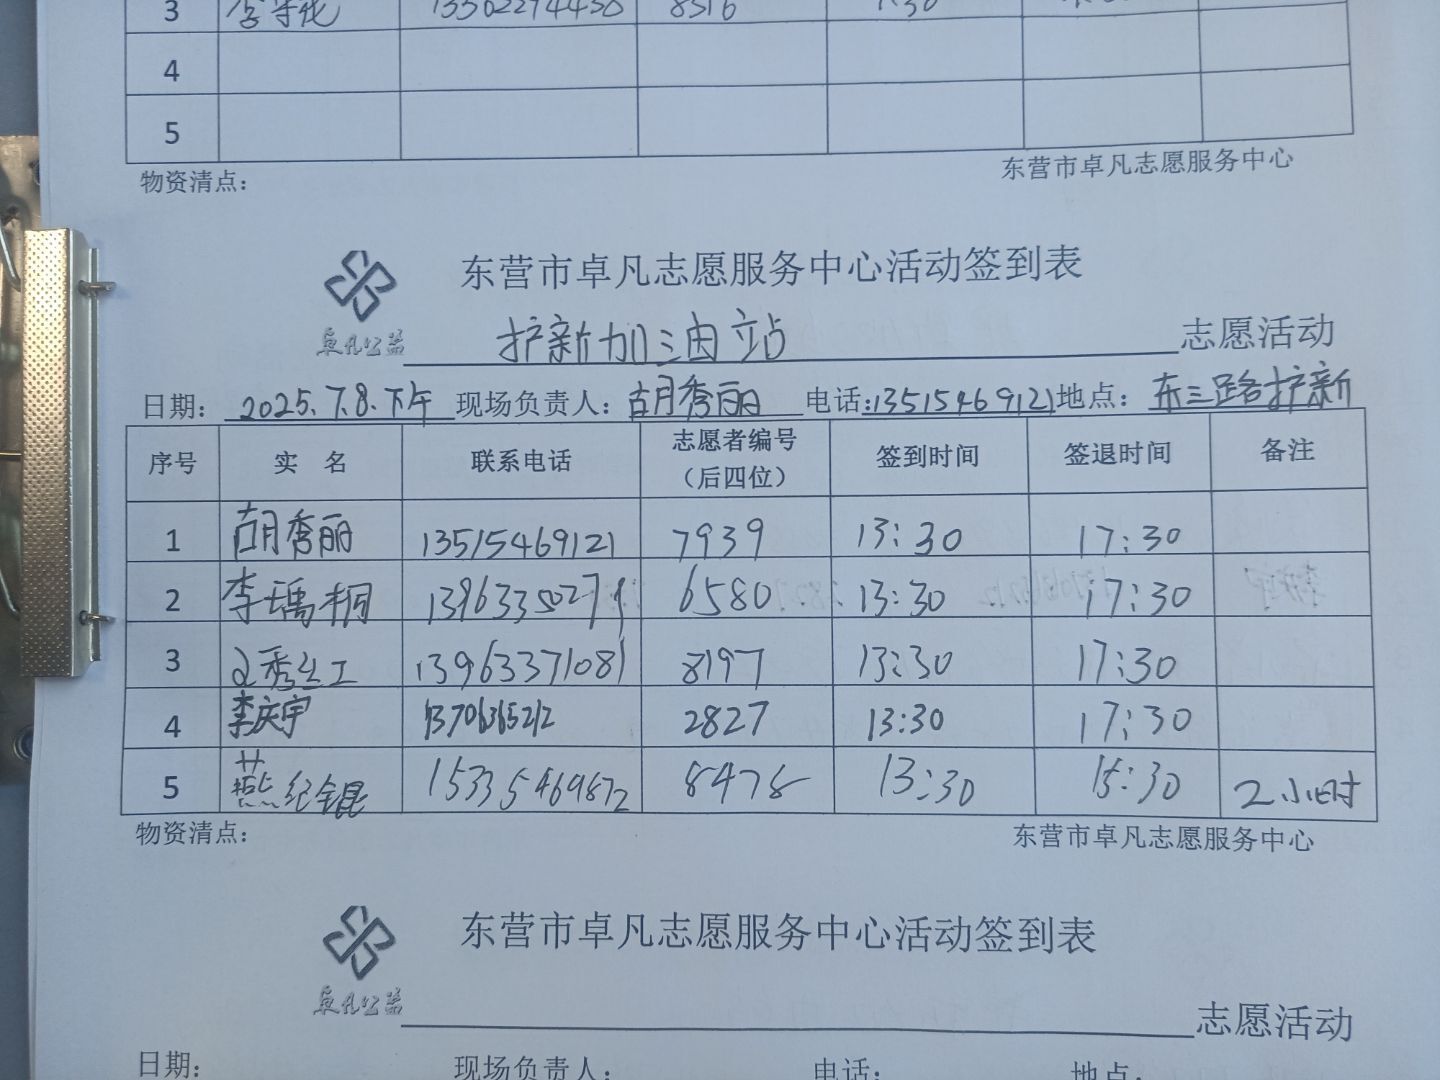 3 8516
4
5
物资清点： 东营市卓凡志愿服务中心
东营市卓凡志愿服务中心活动签到表
卓凡公益 护新加油站 志愿活动
日期： 2025.7.8.下午 现场负责人：胡秀丽 电话：13515469121 地点： 东三路护新
序号 实 名 联系电话 志愿者编号（后四位） 签到时间 签退时间 备注
1 胡秀丽 13515469121 7939 13:30 17:30
2 李瑀桐 13963350279 6580 13:30 17:30
3 13963371081 8197 13:30 17:30
4 李庆宇 13706365212 2827 13:30 17:30
5 燕纪锟 15335469872 8478 13:30 15:30 2小时
物资清点： 东营市卓凡志愿服务中心
东营市卓凡志愿服务中心活动签到表
卓凡公益 志愿活动
日期： 现场负责人： 电话： 地点：